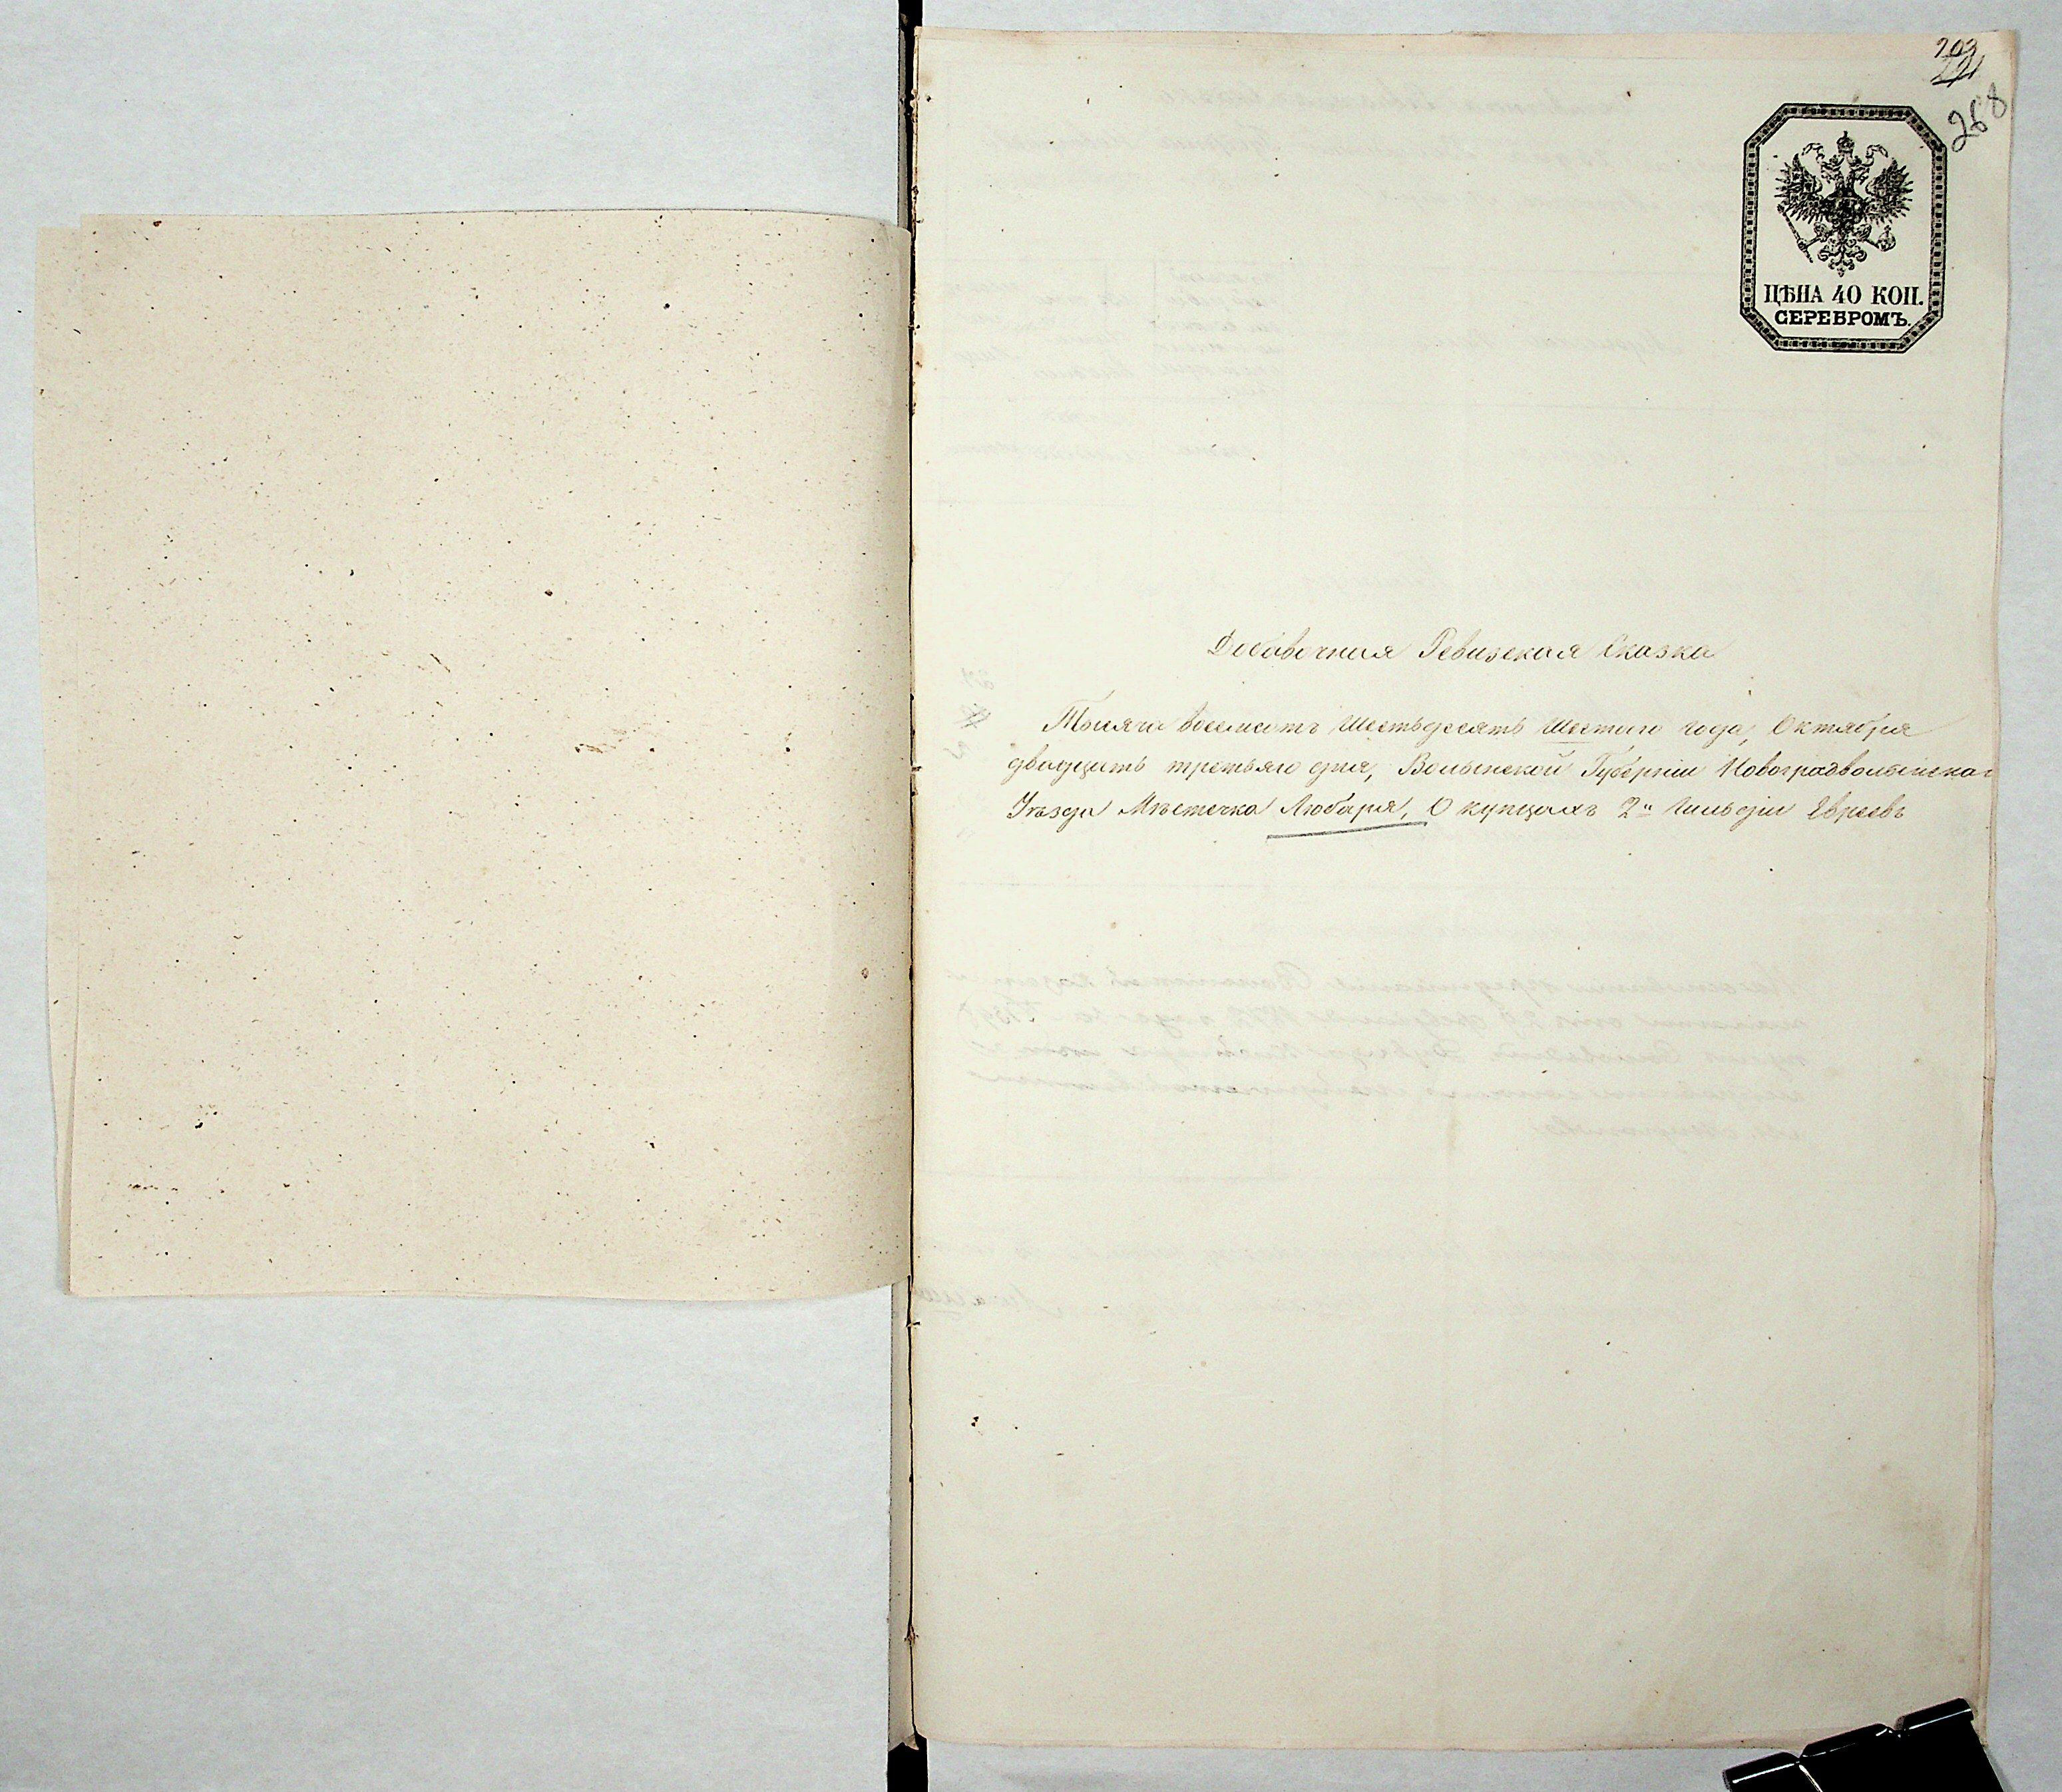 203
268
ЦѢНА 40 КОП.
СЕРЕБРОМЪ.
Добавочная Ревизская Сказка
Тысяча восемсотъ шестьдесять шестого года, Октября
двадцать третьяго дня, Волынской Губерніи Новоградволынскаг
Уѣзда Мѣстечка Любаря, О купцахъ 2й Гильдіи Евреевъ